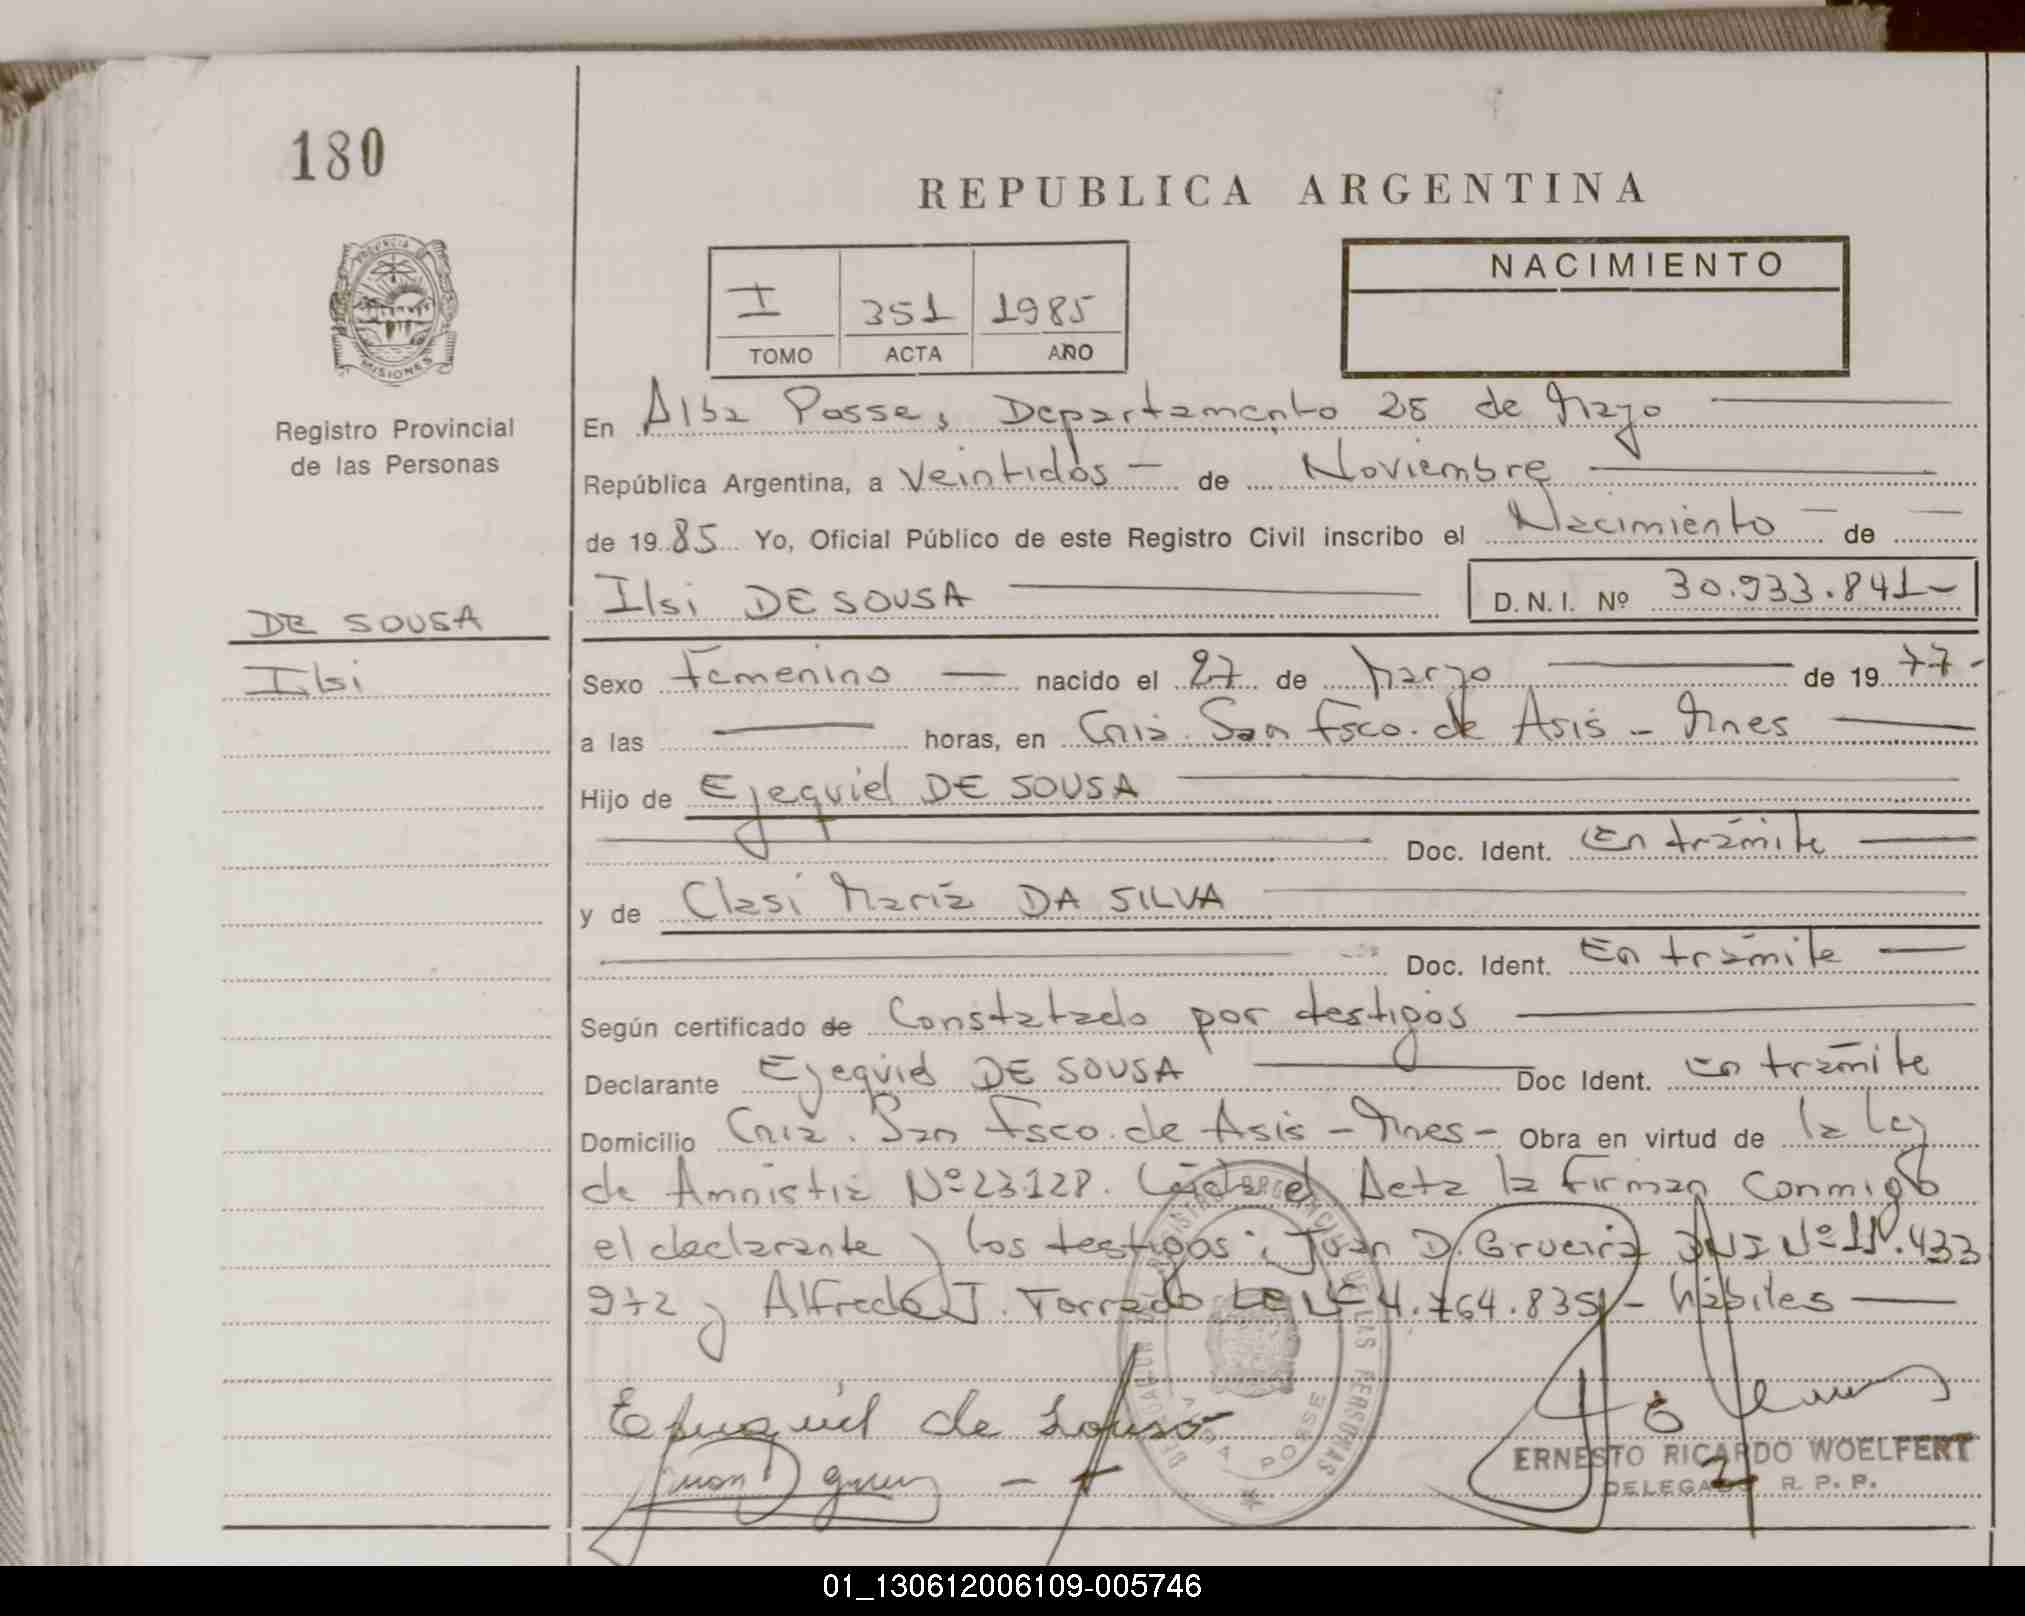 180
REPUBLICA ARGENTINA
PROVINCIA
MISIONES
I 351 1985
TOMO ACTA AÑO
NACIMIENTO
Registro Provincial
de las Personas
En Alba Posse, Departamento 25 de Mayo
República Argentina, a Veintidós de Noviembre
de 1985 Yo, Oficial Público de este Registro Civil inscribo el Nacimiento de
Ilsi DE SOUSA D.N.I. Nº 30.933.841-
DE SOUSA
Ilsi
Sexo Femenino nacido el 27 de Marzo de 1977-
a las horas, en Cnia. San Fsco. de Asis - Mnes
Hijo de Ejequiel DE SOUSA
Doc. Ident. En trámite
y de Clasi María DA SILVA
Doc. Ident. En trámite
Según certificado de Constatado por testigos
Declarante Ejequiel DE SOUSA Doc Ident. En trámite
Domicilio Cnia. San Fsco. de Asis - Mnes - Obra en virtud de la Ley
de Amnistia Nº 23.128. Leída el Acta la firman conmigo
el declarante y los testigos: Juan D. Grueira DNI Nº 11.433
972 y Alfredo J. Torrado LE Nº 4.764.835 - hábiles
Ejequiel de Souso
Juan D
ALBA POSSE
ERNESTO RICARDO WOELFERT
DELEGADO R. P. P.
01_130612006109-005746